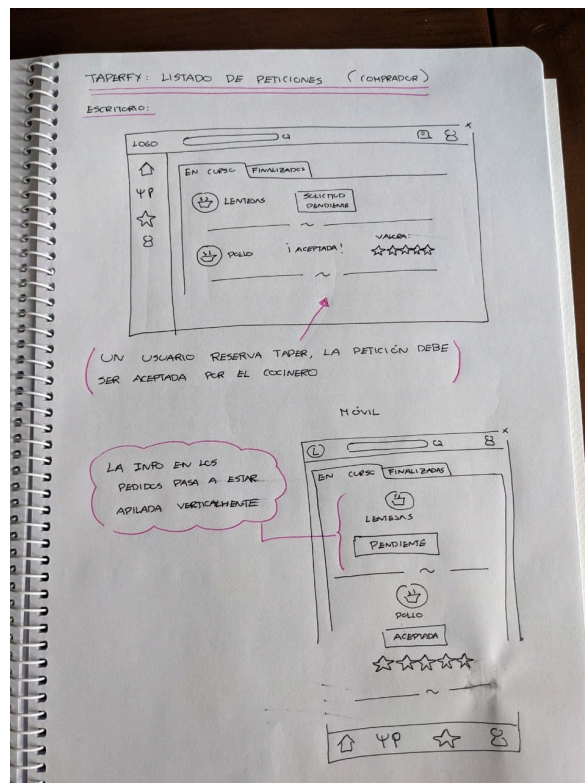 TAPERFY: LISTADO DE PETICIONES (COMPRADOR)
ESCRITORIO:
LOGO
EN CURSO FINALIZADOS
LENTEJAS
SOLICITUD
PENDIENTE
POLLO
¡ACEPTADA!
VALORA:
UN USUARIO RESERVA TAPER, LA PETICIÓN DEBE
SER ACEPTADA POR EL COCINERO
MÓVIL
LA INFO EN LOS
PEDIDOS PASA A ESTAR
APILADA VERTICALMENTE
L
EN CURSO FINALIZADAS
LENTEJAS
PENDIENTE
POLLO
ACEPTADA